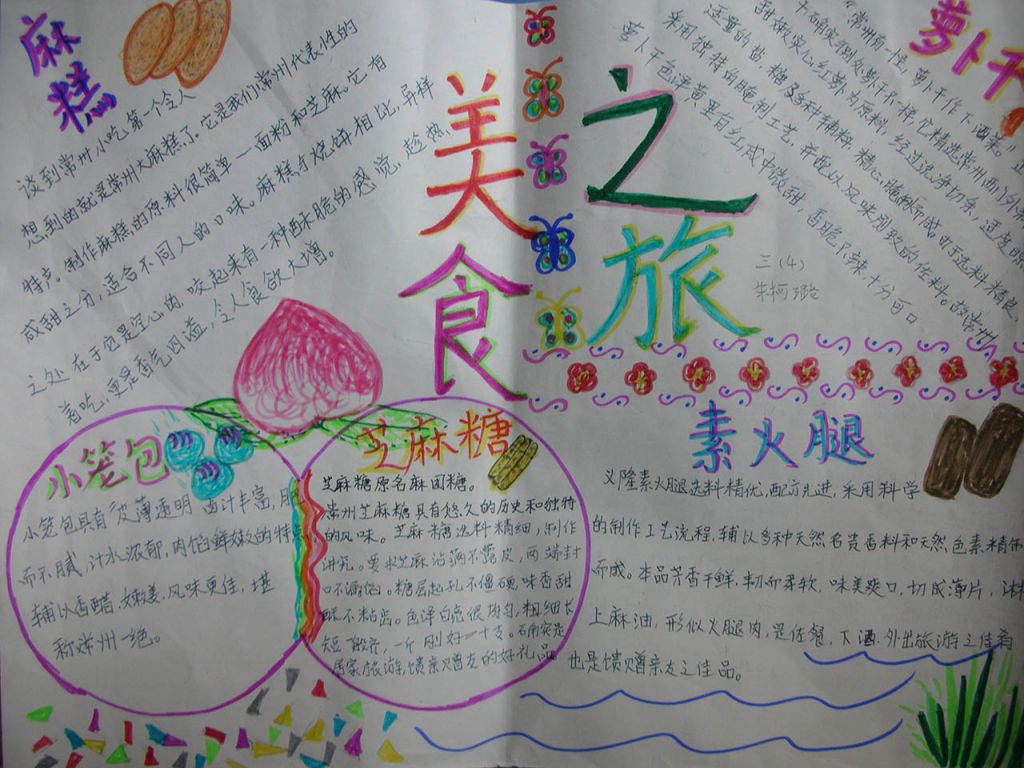 美食
之旅
三(4)
朱柯璐
麻糕
谈到常州小吃第一个令人
想到的就是常州大麻糕了。它是我们常州代表性的
特产。制作麻糕的原料很简单——面粉和芝麻。它有
咸甜之分,适合不同人的口味。麻糕与烧饼相比,异样
之处在于它是空心的,咬起来有一种酥脆的感觉。趁热
着吃,更是香气四溢,令人食欲大增。
萝卜干
“常州有一怪,萝卜干作下酒菜。”
干确实与别处萝卜干不一样,它精选常州西门外
甜嫩实心红萝卜为原料,经过洗净切条,适度晒
适量的盐、糖及多种辅料,精心腌制而成。由于选料精良,
采用独特的腌制工艺,并配以风味别致的佐料。故常州
萝卜干色泽黄里有红,咸中微甜,香脆,十分可口
小笼包
小笼包具有皮薄透明、卤汁丰富,肥
而不腻,汁水浓郁,肉馅鲜嫩的特点,
辅以香醋、嫩姜,风味更佳,堪
称常州一绝。
芝麻糖
芝麻糖原名麻团糖。
常州芝麻糖具有悠久的历史和独特
的风味。芝麻糖选料精细,制作
讲究。要求芝麻沾满不露皮,两端封
口不漏馅。糖层起孔不僵硬,味香甜
酥不粘齿。色泽白亮很均匀,粗细长
短一般齐,一斤刚好一十支。的确实是
居家旅游,馈亲赠友的好礼品。
素火腿
义隆素火腿选料精优,配方先进,采用科学
的制作工艺流程,辅以多种天然名贵香料和天然色素精作
而成。本品芳香干鲜,韧而柔软,味美爽口,切成薄片,沐
上麻油,形似火腿肉,是佐餐、下酒、外出旅游之佳肴
也是馈赠亲友之佳品。